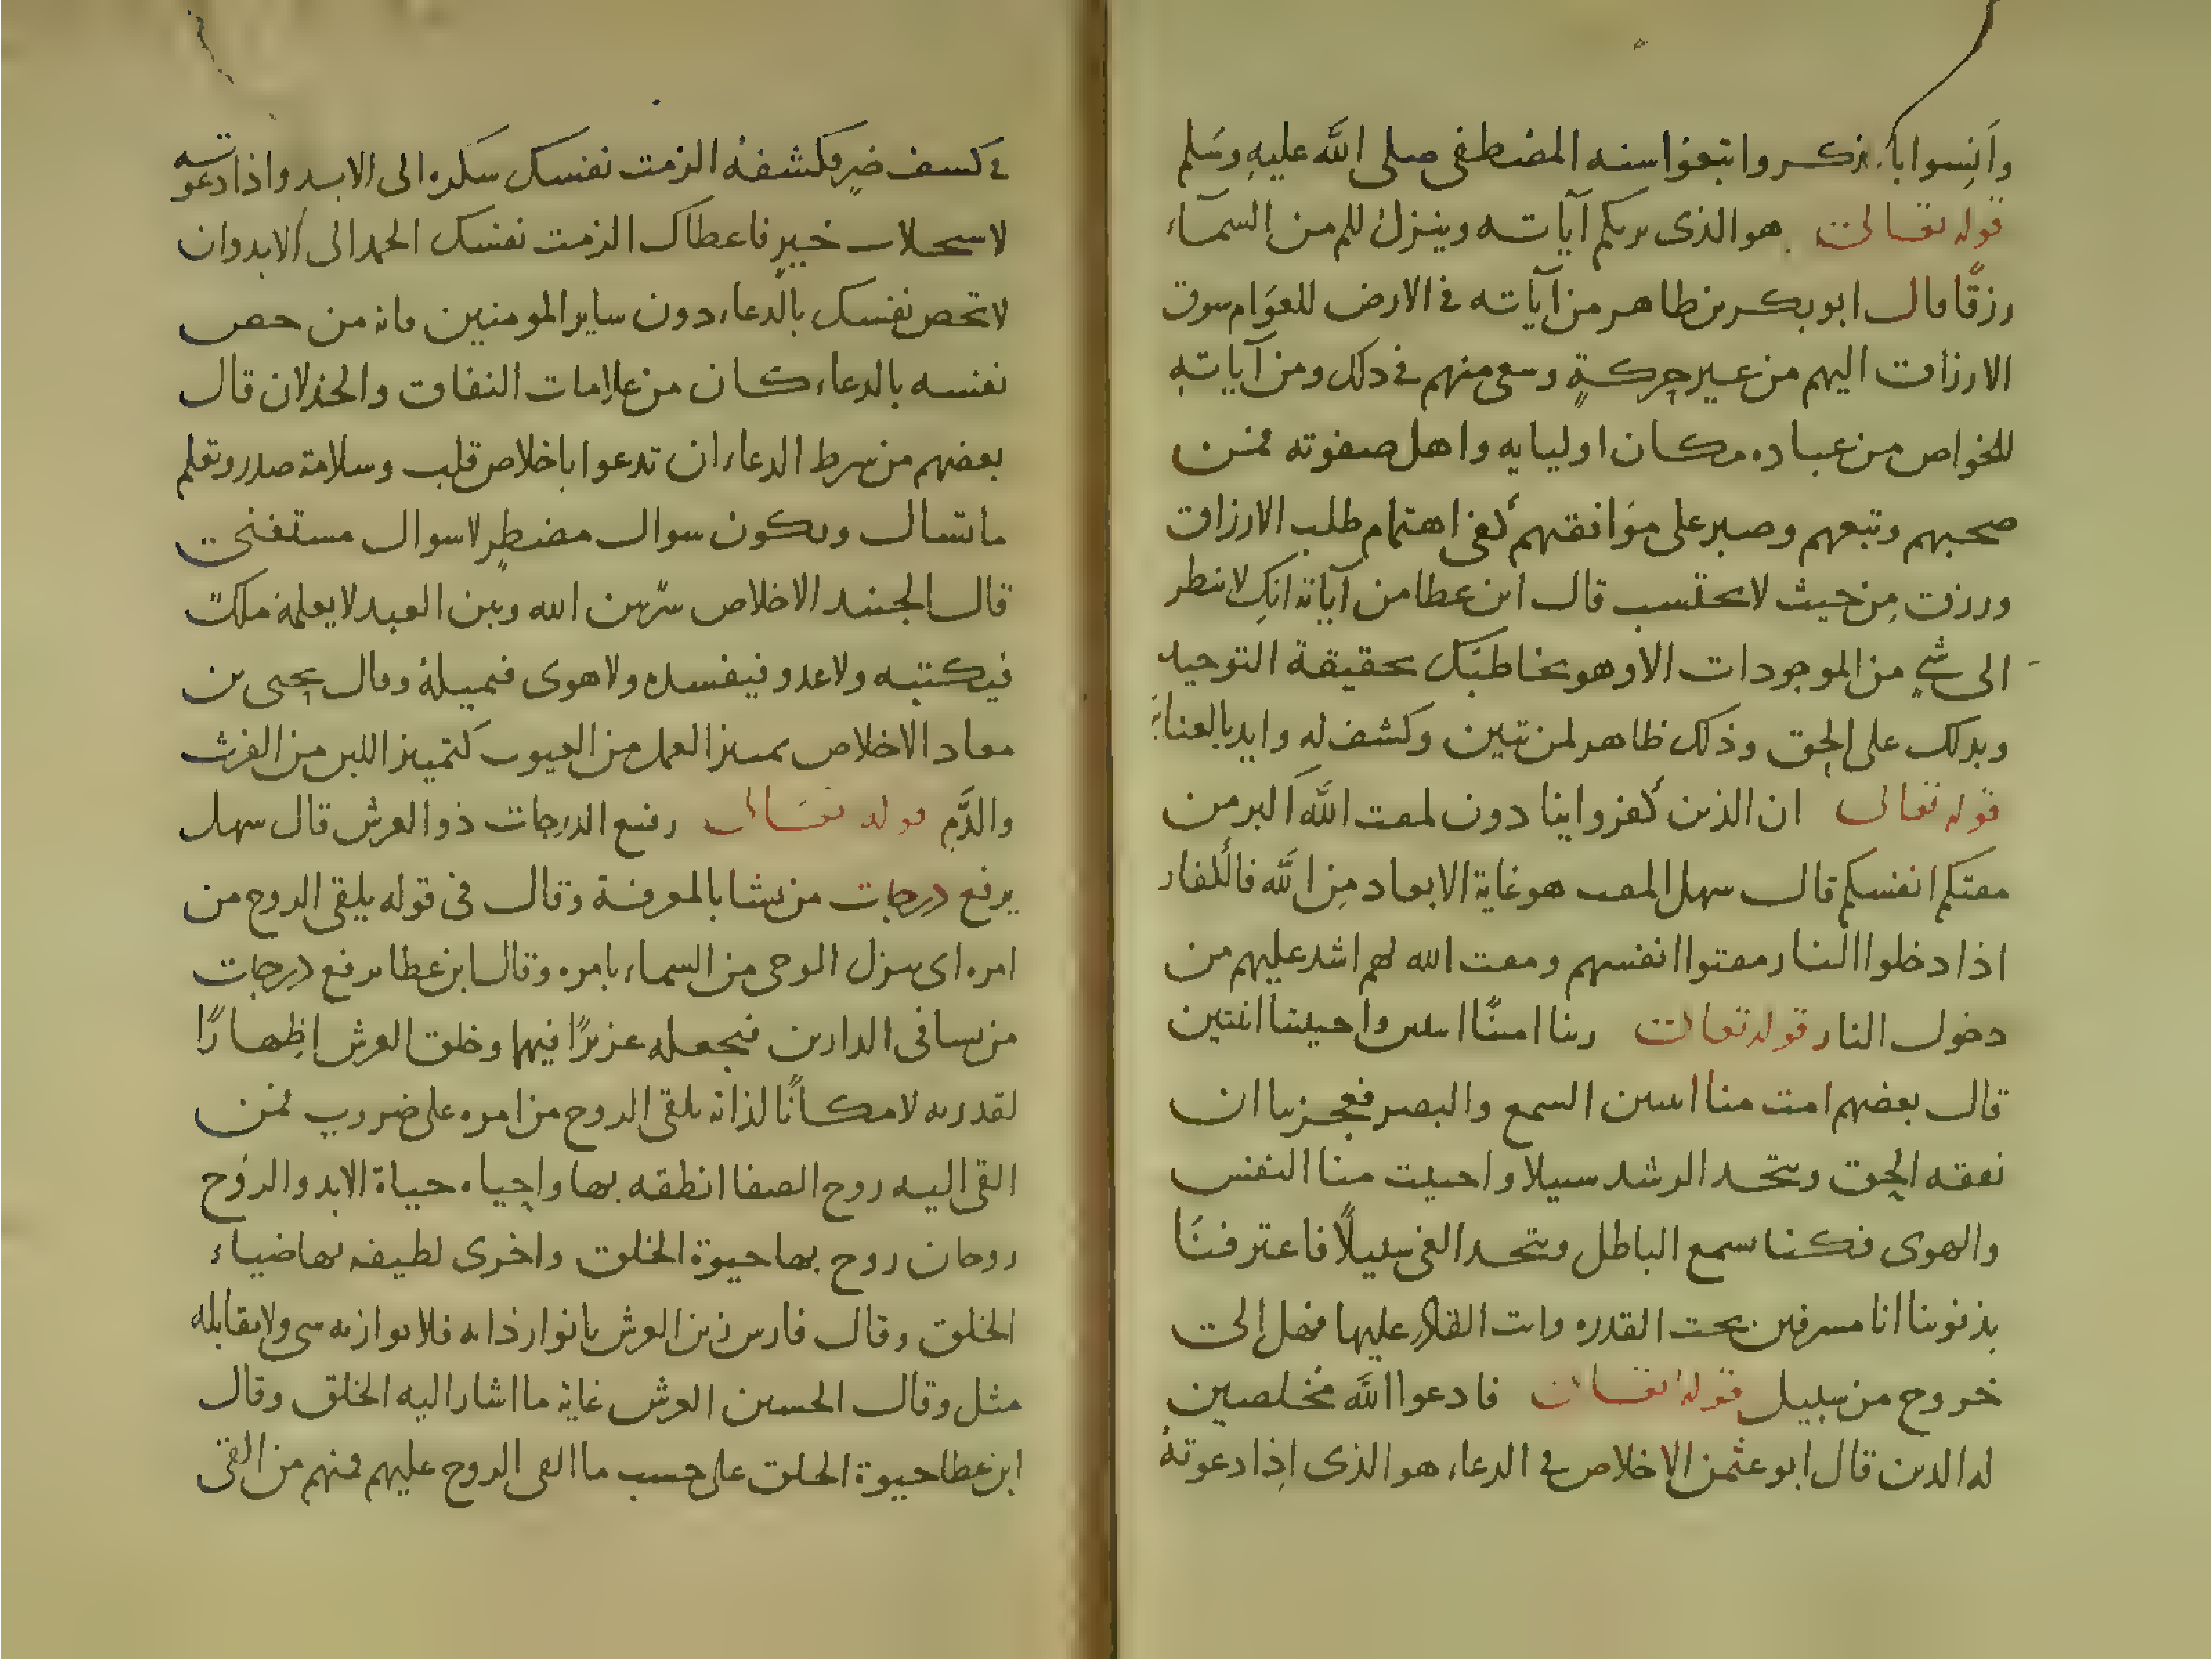 وآنسوا بالذكر واتبعوا سنه المصطفى صلى الله عليه وسلم
قوله تعالى هو الذى يريكم آياته وينزل لكم من السماء
رزقا قال ابو بكر بن طاهر من آياته فى الارض للعوام سوق
الارزاق اليهم من غير حركة وسعى منهم فى ذلك ومن آياته
للخواص من عباده مكان اوليايه واهل صفوته فمن
صحبهم وتبعهم وصبر على موافقتهم كفى اهتمام طلب الارزاق
ورزق من حيث لا يحتسب قال ابن عطا من آياته انك لا تنظر
الى شي من الموجودات الا وهو يخاطبك بحقيقة التوحيد
ويدلك على الحق وذلك ظاهر لمن تبين وكشف له وايد بالعناية
قوله تعالى ان الذين كفروا ينادون لمقت الله اكبر من
مقتكم انفسكم قال سهل المقت هو غاية الابعاد من الله فالكفار
اذا دخلوا النار مقتوا انفسهم ومقت الله لهم اشد عليهم من
دخول النار قوله تعالى ربنا امتنا اثنتين واحييتنا اثنتين
قال بعضهم امت منا اثنين السمع والبصر فعجزنا ان
نفقه الحق ونتخذ الرشد سبيلا واحييت منا النفس
والهوى فكنا نسمع الباطل ونتخذ الغى سبيلا فاعترفنا
بذنوبنا انا مسرفين تحت القدره وانت القادر عليها فهل الى
خروج من سبيل قوله تعالى فادعوا الله مخلصين
له الدين قال ابو عثمن الاخلاص فى الدعاء هو الذى اذا دعوته
فى كشف ضر فكشفه الزمت نفسك شكره الى الابد واذا دعوته
لاستجلاب خير فاعطاك الزمت نفسك الحمد الى الابد وان
لا تخص نفسك بالدعاء دون ساير المومنين فانه من خص
نفسه بالدعاء كان من علامات النفاق والخذلان قال
بعضهم من شرط الدعاء ان تدعوا باخلاص قلب وسلامة صدر وتعلم
ما تسال ويكون سوال مضطر لا سوال مستغنى
قال الجنيد الاخلاص سر بين الله وبين العبد لا يعلمه ملك
فيكتبه ولا عدو فيفسده ولا هوى فيميله وقال يحيى بن
معاذ الاخلاص تمييز العمل من العيوب كتمييز اللبن من الفرث
والدم قوله تعالى رفيع الدرجات ذو العرش قال سهل
يرفع درجات من يشا بالمعرفة وقال فى قوله يلقى الروح من
امره اى ينزل الوحى من السماء بامره وقال ابن عطا يرفع درجات
من يشا فى الدارين فيجعله عزيزا فيهما وخلق العرش اظهارا
لقدرته لا مكانا لذاته يلقى الروح من امره على ضروب فمن
القى اليه روح الصفا انطقه بها واحياه حياة الابد والروح
روحان روح بها حيوة الخلق واخرى لطيفه بها ضياء
الخلق وقال فارس زين العرش بانوار ذاته فلا يوازيه شى ولا يقابله
مثل وقال الحسين العرش غاية ما اشار اليه الخلق وقال
ابن عطا حيوة الخلق على حسب ما القى الروح عليهم فمنهم من القى